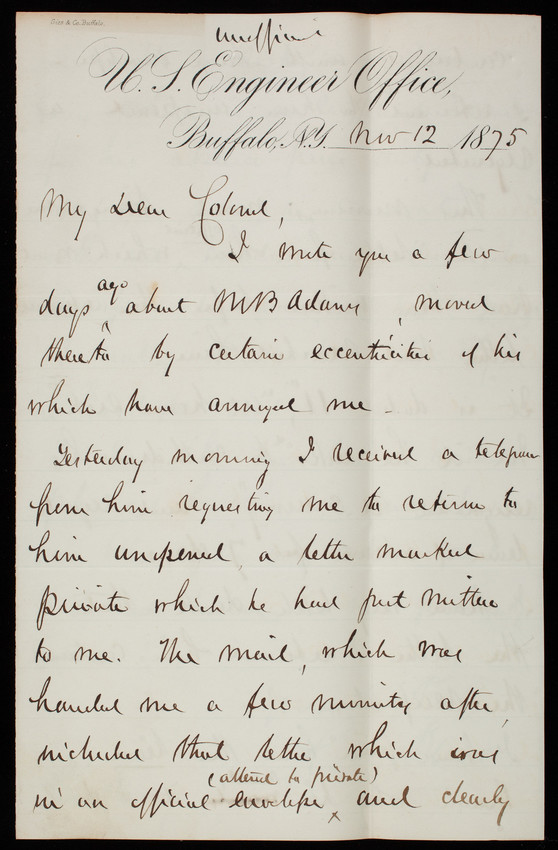 unofficial
U. S. Engineer Office,
Buffalo, N.Y. Nov 12 1875
My Dear Colonel,
I wrote you a few
days ago about M B Adams, moved
thereto by certain eccentricities of his
which have annoyed me –
Yesterday morning I received a telegram
from him requesting me to return to
him unopened, a letter marked
private which he had just written
to me. The mail, which was
handed me a few minutes after,
included that letter which was
in an official envelope (altered to private) and clearly